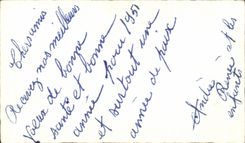 Chers amis
Recevez nos meilleurs
vœux de bonne
santé et bonne
année pour 1951
et surtout une
année de paix
Renée et les
enfants